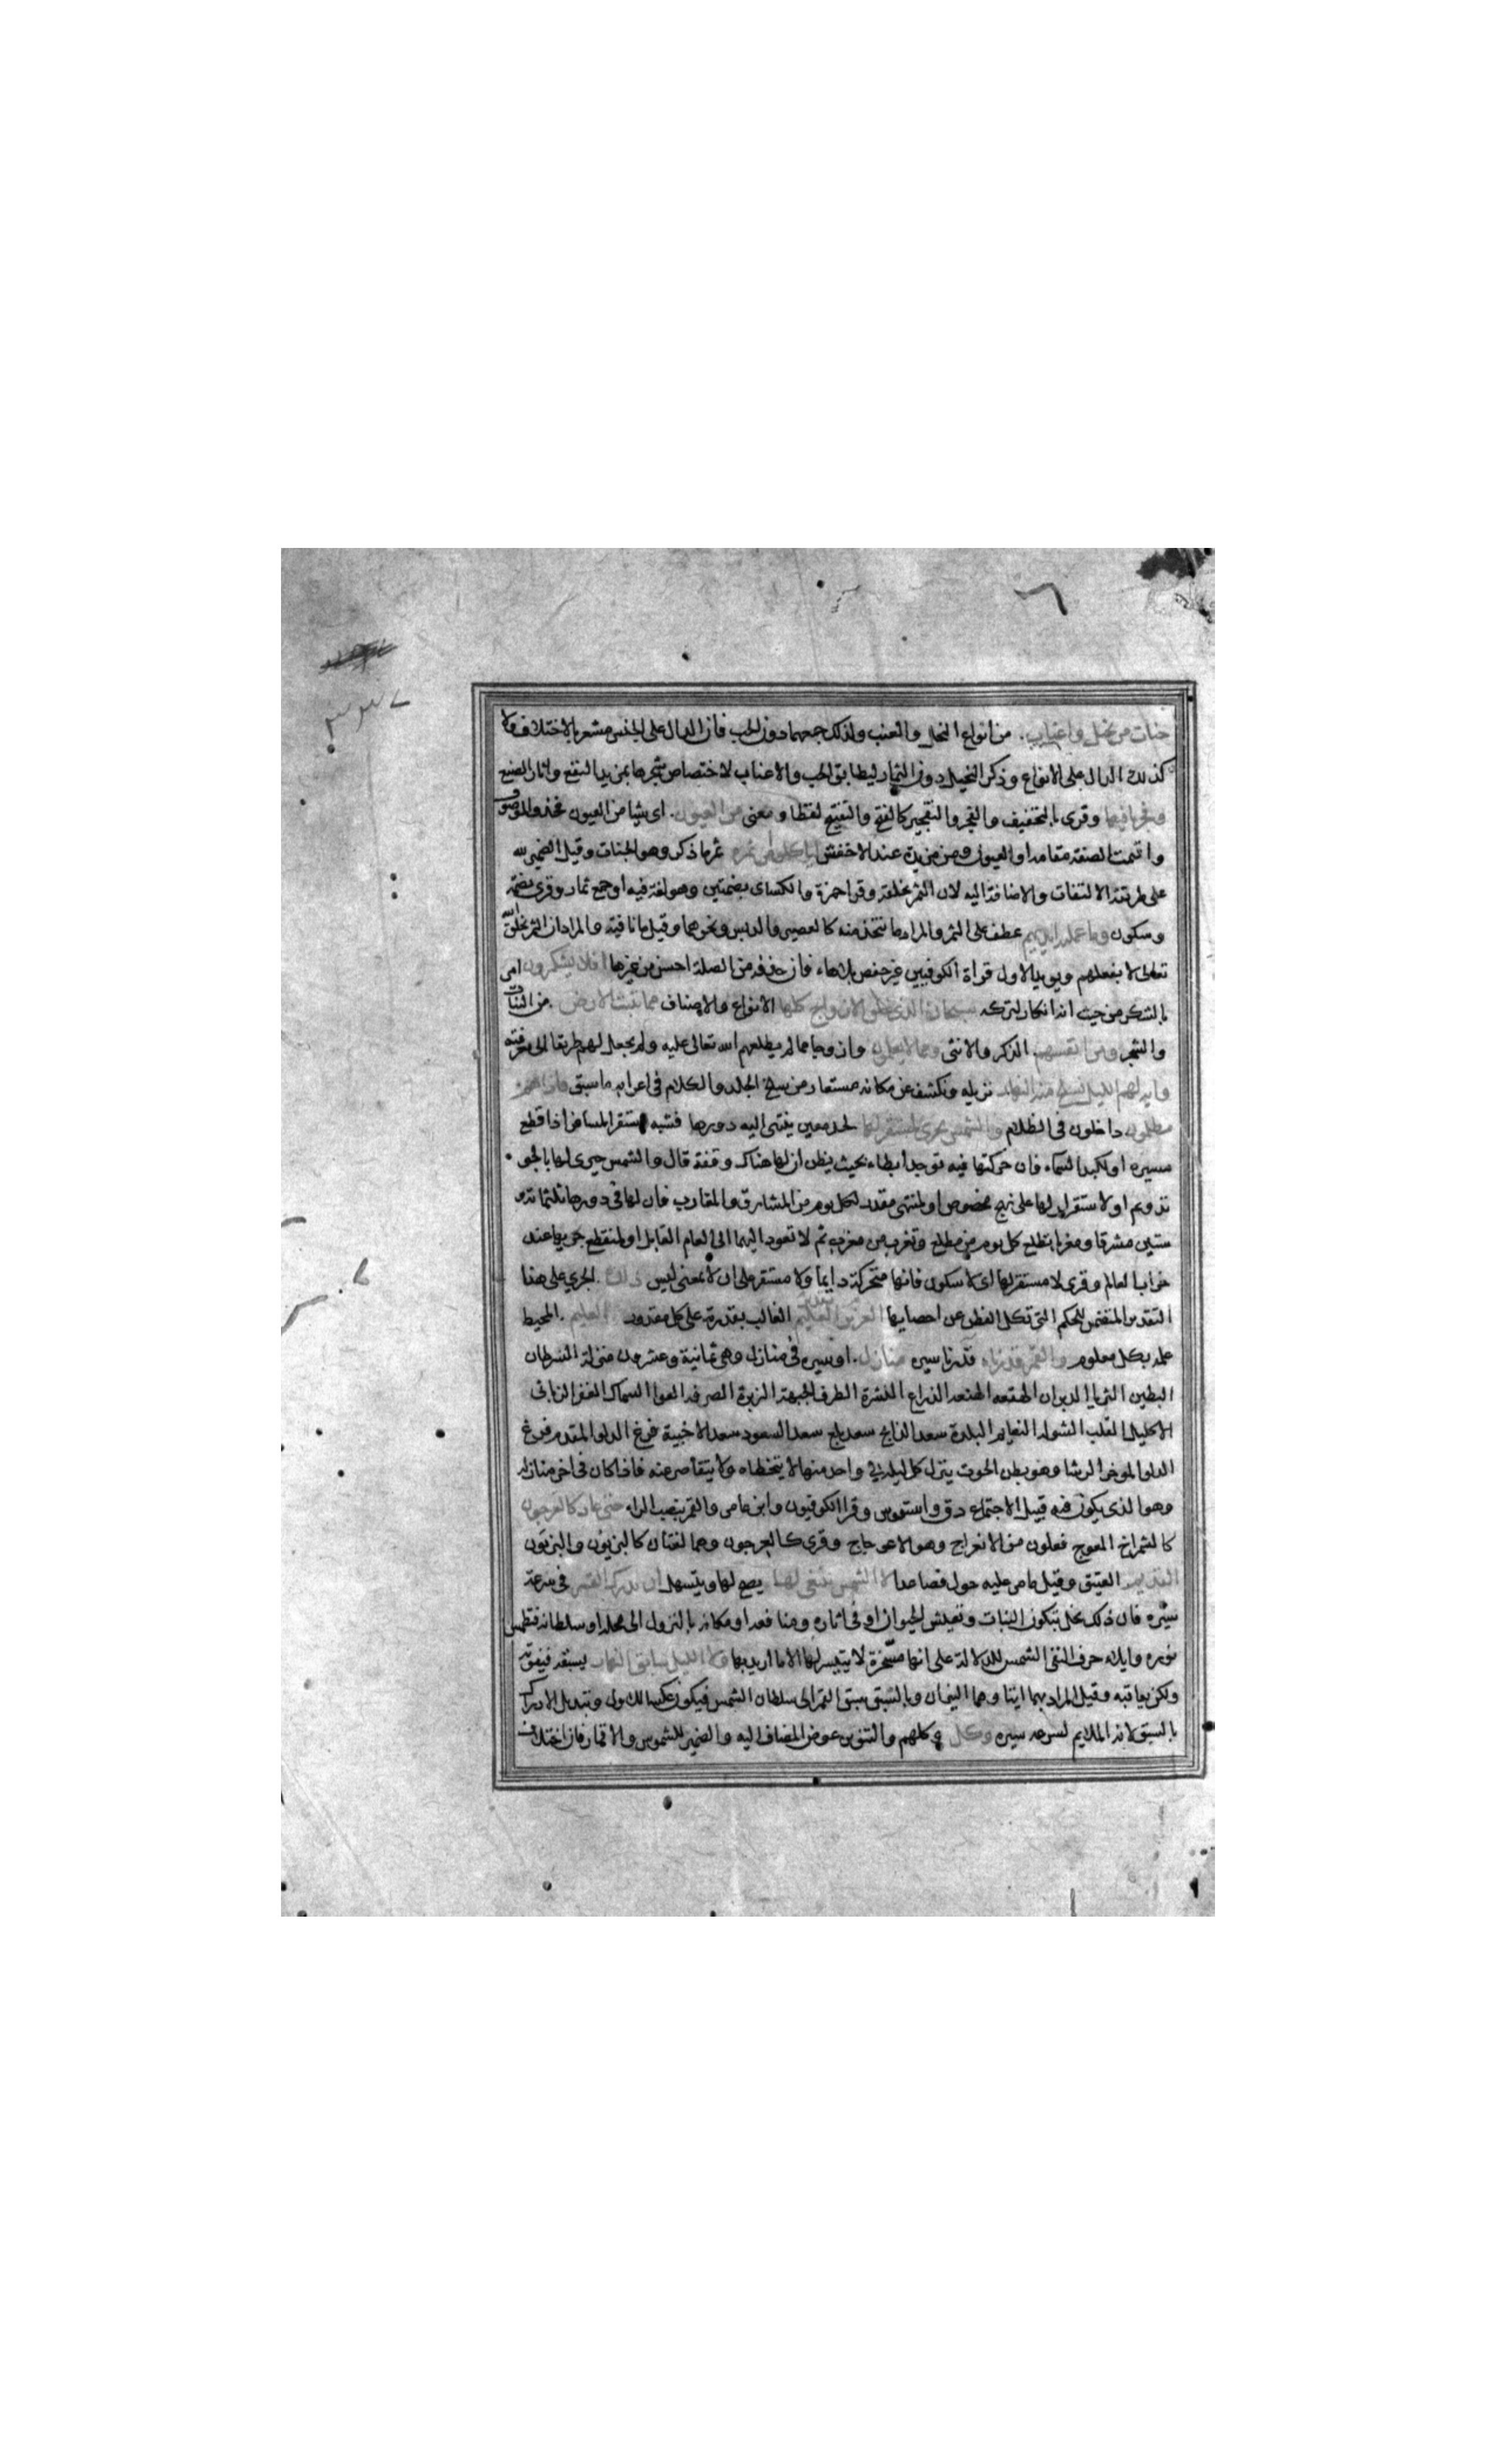 جنات من نخيل واعناب من انواع النخل والعنب ولذلك جمعهما دون الحب فان الدال على الجنس مشعر بالاختلاف ولا
كذلك الدال على الانواع وذكر النخيل دون التمار ليطابق الحب والاعناب لاختصاص شجرها بمزيد النفع واثار الصنع
وفجرنا فيها وقرى بالتخفيف والفجر والتفجير كالفتح والتفتيح لفظا ومعنى من العيون اى شيا من العيون فحذف الموصوف
واقيمت الصفة مقامه او العيون ومن مزيدة عند الاخفش لياكلوا من ثمره ثمر ما ذكر وهو الجنات وقيل الضمير لله
على طريقة الالتفات والاضافة اليه لان الثمر بخلقه وقرا حمزة والكساى بضمتين وهو لغة فيه او جمع ثمار وقرى بضمة
وسكون وما عملته ايديهم عطف على الثمر والمراد ما يتخذ منه كالعصير والدبس ونحوهما وقيل ما نافية والمراد ان الثمر بخلق الله
تعالى لا بفعلهم ويويد الاول قراة الكوفيين غير حفص بلا هاء فان حذفه من الصلة احسن من غيرها افلا يشكرون امر
بالشكر من حيث انه انكار لتركه سبحان الذى خلق الازواج كلها الانواع والاصناف مما تنبت الارض من النبات
والشجر ومن انفسهم الذكر والانثى ومما لا يعلمون وازواجا مما لم يطلعهم الله تعالى عليه ولم يجعل لهم طريقا الى معرفته
واية لهم الليل نسلخ منه النهار نزيله ونكشف عن مكانه مستعار من سلخ الجلد والكلام فى اعرابه ما سبق فاذا هم
مظلمون داخلون فى الظلام والشمس تجرى لمستقر لها لحد معين ينتهى اليه دورها فشبه بمستقر المسافر اذا قطع
مسيره او لكبد السماء فان حركتها فيه توجد ابطاء بحيث يظن ان لها هناك وقفة قال والشمس حيرى لها بالجو
تدويم او لاستقرار لها على نهج مخصوص او لمنتهى مقدر لكل يوم من المشارق والمغارب فان لها فى دورها ثلثمائة و
ستين مشرقا ومغربا تطلع كل يوم من مطلع وتغرب من مغرب ثم لا تعود اليهما الى العام القابل او لمنقطع جريها عند
خراب العالم وقرى لا مستقر لها اى لا سكون فانها متحركة دايما ولا مستقر على ان لا بمعنى ليس ذلك الجرى على هذا
التقدير المتضمن للحكم التى تكل الفطن عن احصايها تقدير العزيز الغالب بقدرة على كل مقدور العليم المحيط
علمه بكل معلوم والقمر قدرناه قدرنا سيره منازل او سيره فى منازل وهى ثمانية وعشرون منزلة الشرطان
البطين الثريا الدبران الهقعه الهنعه الذراع النثرة الطرف الجبهة الزبرة الصرفه العوا السماك الغفر الزبانى
الاكليل القلب الشوله النعايم البلدة سعد الذابح سعد بلع سعد السعود سعد الاخبية فرغ الدلو المقدم فرغ
الدلو الموخر الرشا وهو بطن الحوت ينزل كل ليلة فى واحد منها لا يتخطاه ولا يتقاصر عنه فاذا كان فى اخر منازله
وهو الذى يكون فيه قبيل الاجتماع دق واستقوس وقرا الكوفيون وابن عامر والقمر بنصب الراء حتى عاد كالعرجون
كالشمراخ المعوج فعلون من الانعراج وهو الاعوجاج وقرى كالعرجون وهما لغتان كالبزيون والبزيون
القديم العتيق وقيل ما مر عليه حول فصاعدا لا الشمس ينبغى لها يصح لها ويتسهل ان تدرك القمر فى سرعة
سيره فان ذلك يخل بتكون النبات وتعيش الحيوان او فى اثاره ومنافعه او مكانه بالنزول الى محله او سلطانه فتطمس
نوره وايلاء حرف النفى الشمس للدلالة على انها مسخرة لا يتيسر لها الا ما اريد بها ولا الليل سابق النهار يسبقه فيفوته
ولكن يعاقبه وقيل المراد بهما ايتا وهما النيران وبالسبق سبق القمر الى سلطان الشمس فيكون عكسا للاول وتبديل الادراك
بالسبق لانه الملايم لسرعة سيره وكل وكلهم والتنوين عوض المضاف اليه والضمير للشموس والاقمار فان اختلاف